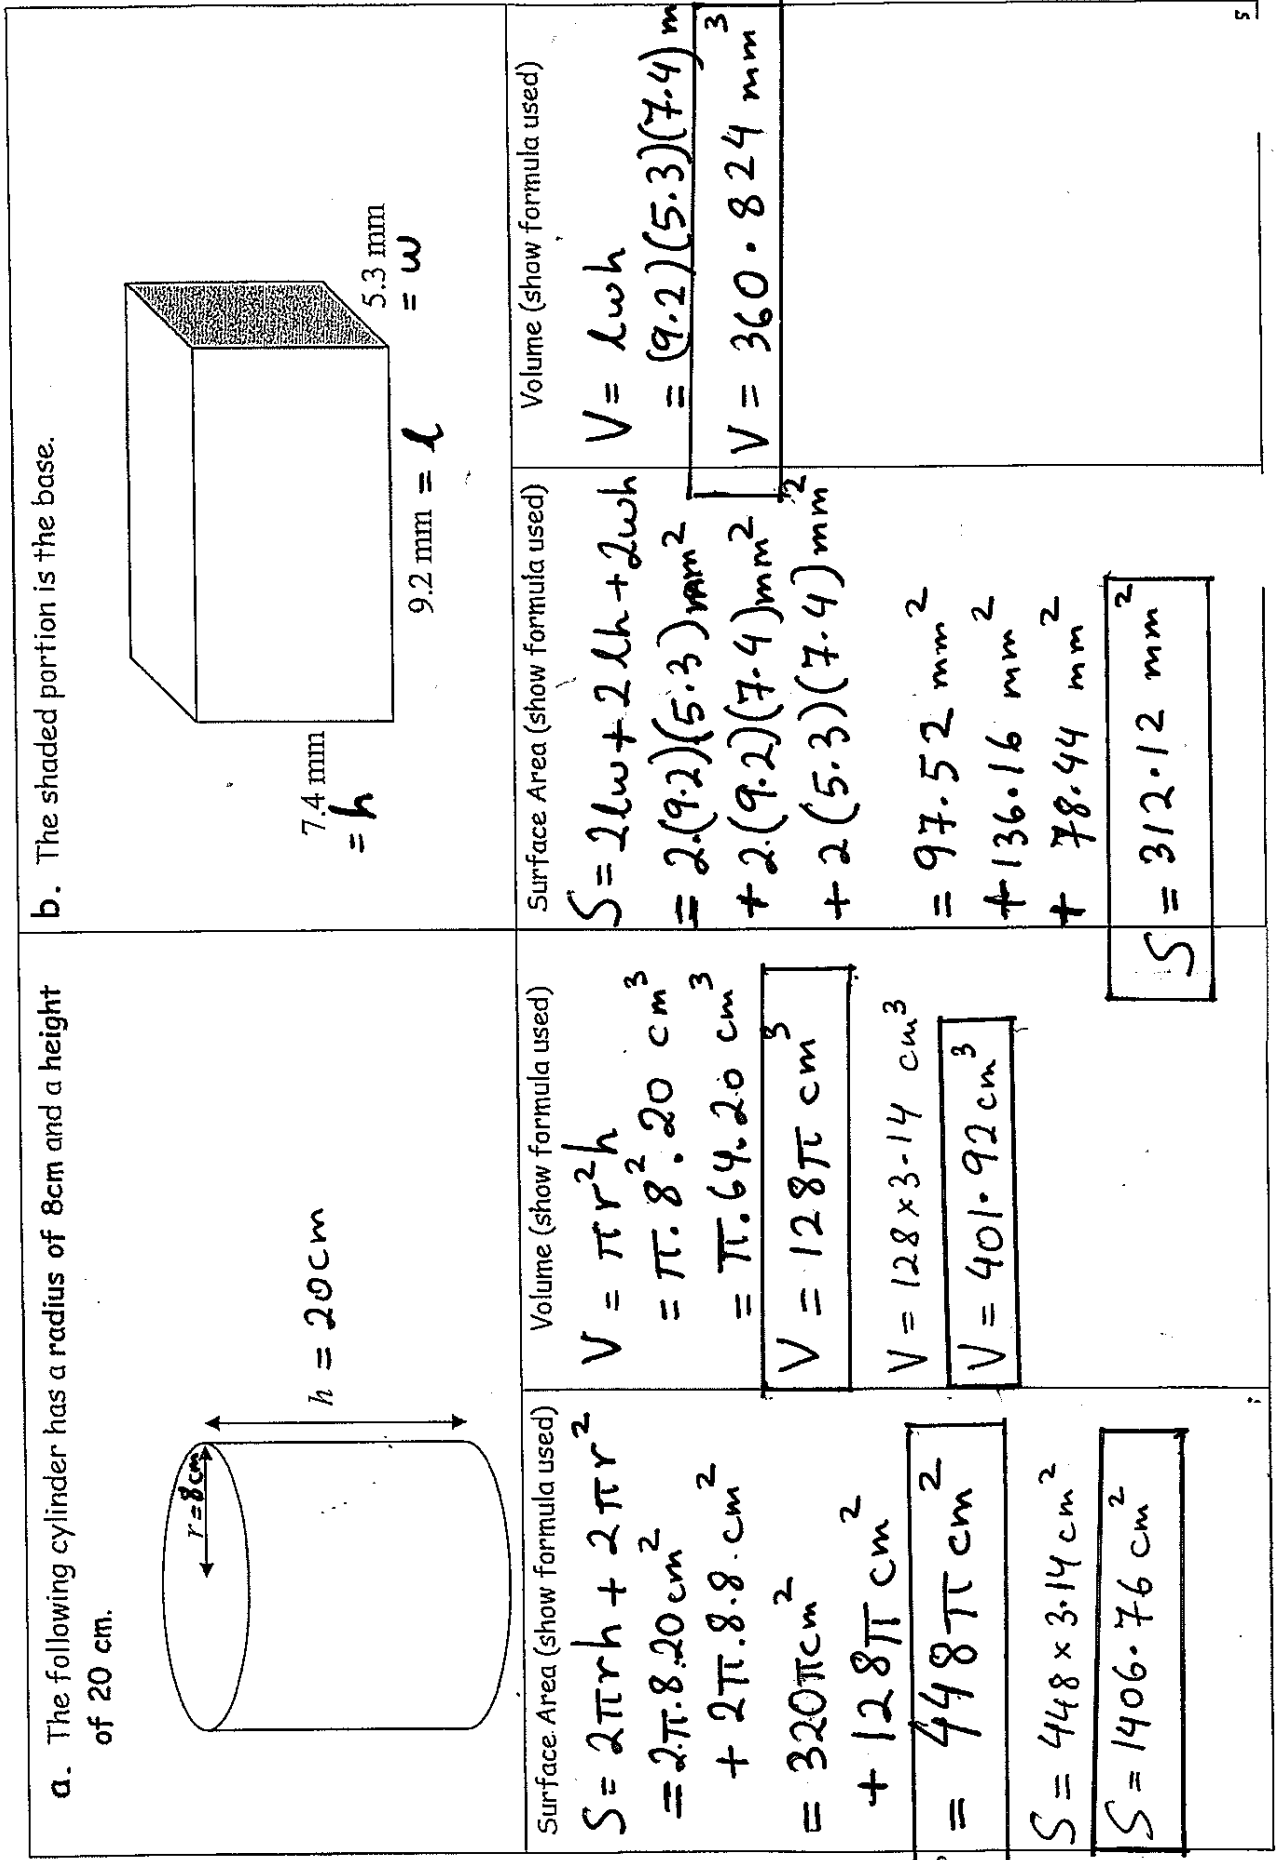 a. The following cylinder has a radius of 8cm and a height
of 20 cm.
r=8cm
h = 20cm
Surface Area (show formula used)
S = 2πrh + 2πr²
= 2π.8.20 cm²
+ 2π.8.8.cm²
= 320πcm²
+ 128π cm²
= 448π cm²
S = 448 x 3.14 cm²
S = 1406.76 cm²
Volume (show formula used)
V = πr²h
= π.8².20 cm³
= π.64.20 cm³
V = 128π cm³
V = 128 x 3.14 cm³
V = 401.92 cm³
b. The shaded portion is the base.
7.4 mm
= h
9.2 mm = l
5.3 mm
= w
Surface Area (show formula used)
S = 2lw + 2lh + 2wh
= 2.(9.2)(5.3)mm²
+ 2.(9.2)(7.4)mm²
+ 2(5.3)(7.4)mm²
= 97.52 mm²
+ 136.16 mm²
+ 78.44 mm²
S = 312.12 mm²
Volume (show formula used)
V = lwh
= (9.2)(5.3)(7.4) m
V = 360.824 mm³
5